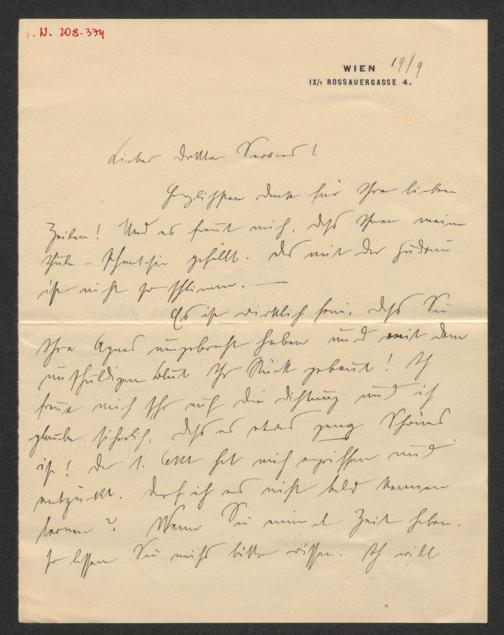 I. N. 208.374
WIEN 19/9
IX/1 ROSSAUERGASSE 4.
Lieber Doktor Servaes!
Herzlichsten Dank für Ihre lieben
Zeilen! Und es freut mich, daß Ihnen meine
gefällt. Das mit der Gudrun
ist nicht so schlimm. —
Es ist wirklich fein, daß Sie
Ihre Agnes angebracht haben und mit dem
unschuldigen Blut Ihr Stück gebaut! Ich
freue mich sehr auf die Dichtung und ich
glaube sicherlich, daß es etwas ganz Schönes
ist! Der 1. Akt hat mich ergriffen und
entzückt. Darf ich es nicht bald kennen
lernen? Wenn Sie einmal Zeit haben,
so lassen Sie mich's bitte wissen. Ich will